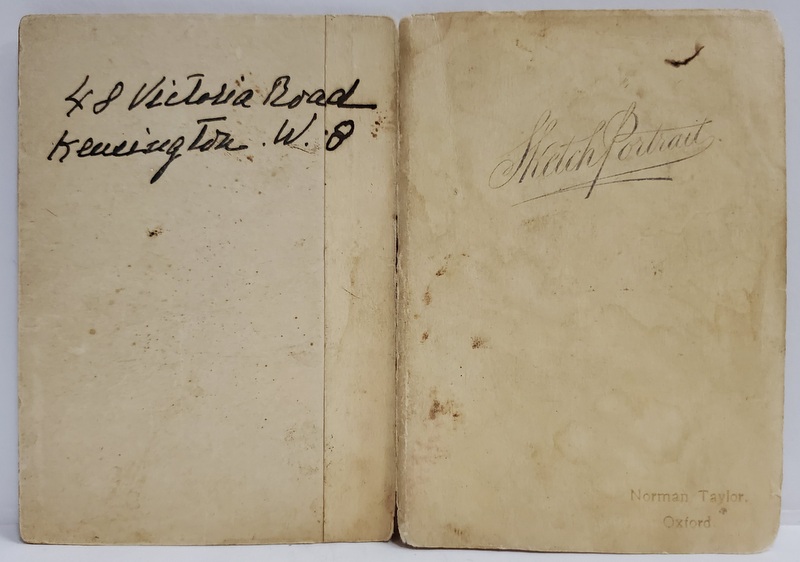 48 Victoria Road
Kensington. W. 8
Sketch Portrait
Norman Taylor.
Oxford